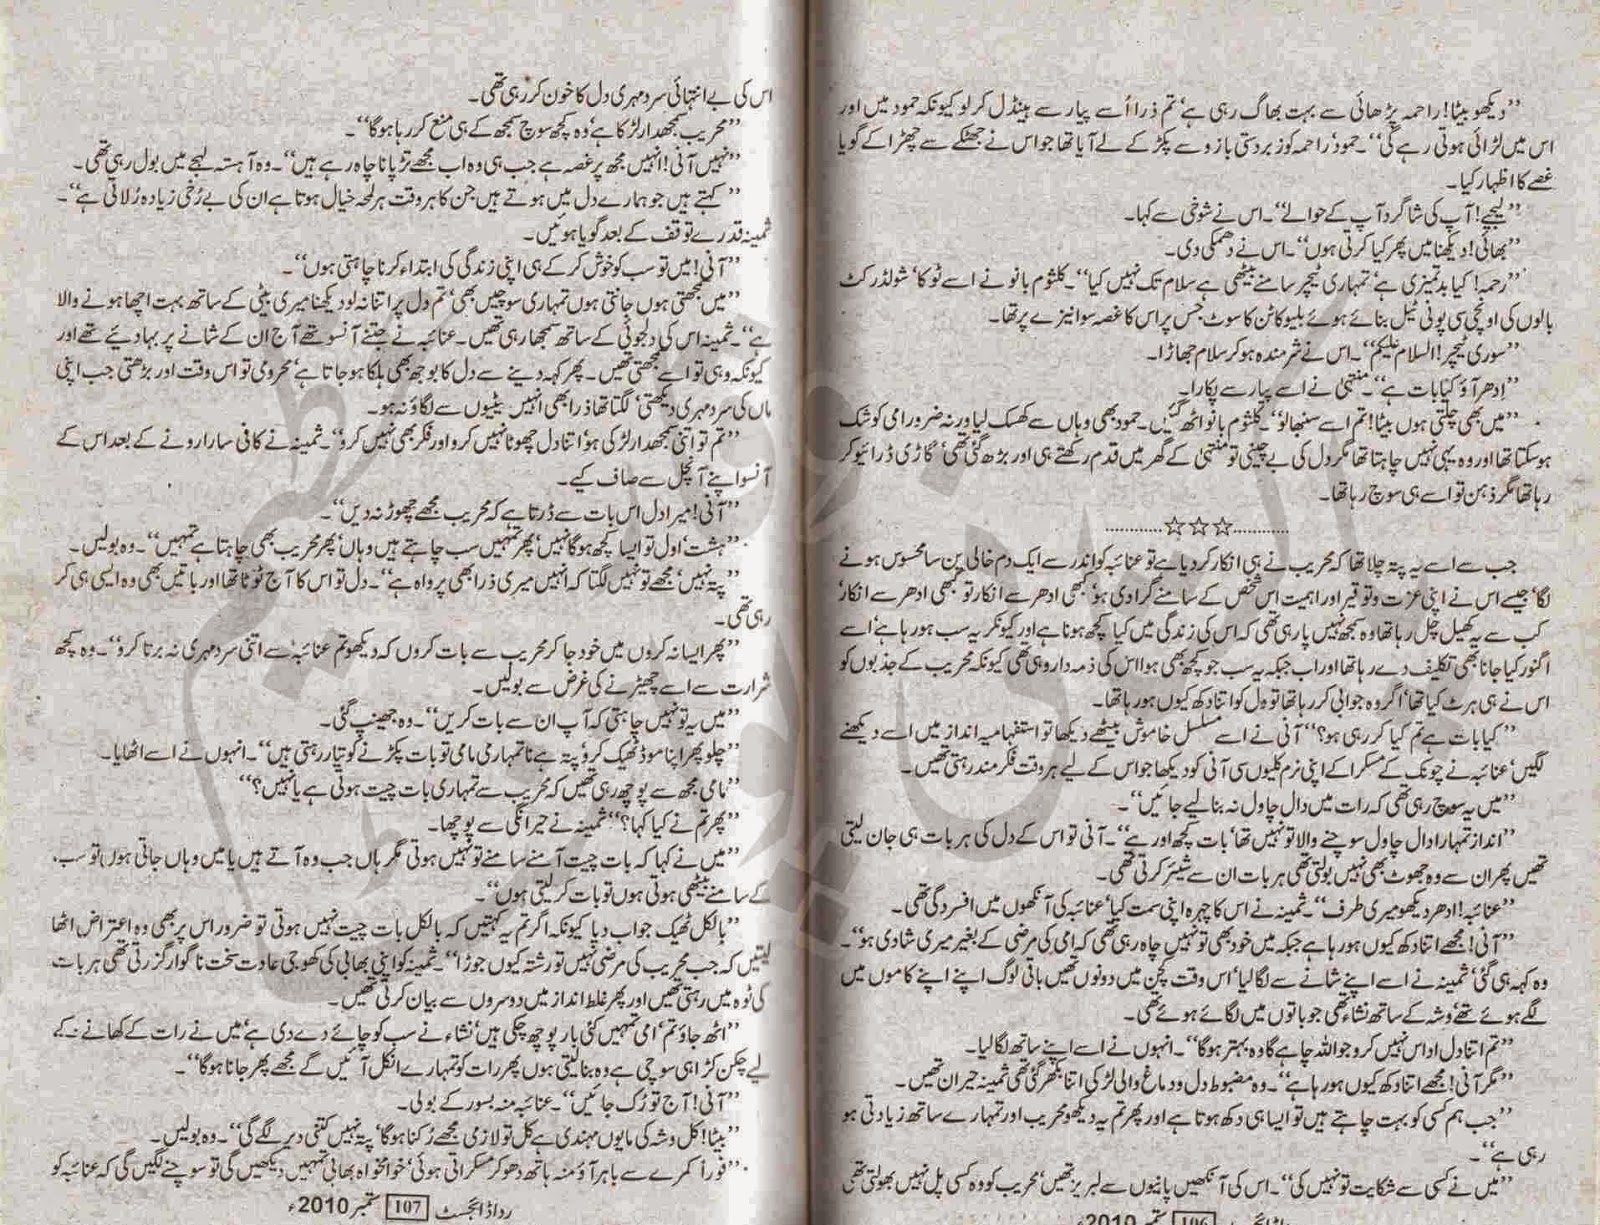 ’’دیکھو بیٹا! راحمہ پڑھائی سے بہت بھاگ رہی ہے‘ تم ذرا اُسے پیار سے ہینڈل کر لو کیونکہ حمود میں اور
اس میں لڑائی ہوتی رہے گی‘‘۔ حمود‘ راحمہ کو زبردستی بازو سے پکڑ کے لے آیا تھا جو اس نے جھٹکے سے چھڑا کے گویا
غصے کا اظہار کیا۔
’’لیجیے! آپ کی شاگرد آپ کے حوالے‘‘۔ اس نے شوخی سے کہا۔
’’بھائی! دیکھنا میں پھر کیا کرتی ہوں‘‘۔ اس نے دھمکی دی۔
’’رحمہ! کیا بدتمیزی ہے‘ تمہاری ٹیچر سامنے بیٹھی ہے سلام تک نہیں کیا‘‘۔ کلثوم بانو نے اسے ٹوکا‘ شولڈر کٹ
بالوں کی اونچی سی پونی ٹیل بنائے ہوئے بلیو کاٹن کا سوٹ جس پر اس کا غصہ سوا نیزے پر تھا۔
’’سوری ٹیچر! السلام علیکم‘‘۔ اس نے شرمندہ ہو کر سلام جھاڑا۔
’’اِدھر آؤ کیا بات ہے‘‘۔ منتہیٰ نے اسے پیار سے پکارا۔
’’میں بھی چلتی ہوں بیٹا! تم اسے سنبھالو‘‘۔ کلثوم بانو اٹھ گئیں۔ حمود بھی وہاں سے کھسک لیا ورنہ ضرور امی کو شک
ہو سکتا تھا اور وہ یہی نہیں چاہتا تھا مگر دل کی بے چینی تو منتہیٰ کے گھر میں قدم رکھتے ہی اور بڑھ گئی تھی‘ گاڑی ڈرائیو کر
رہا تھا مگر ذہن تو اسے ہی سوچ رہا تھا۔
............☆☆☆............
جب سے اسے یہ پتہ چلا تھا کہ محریب نے ہی انکار کر دیا ہے تو عنائبہ کو اندر سے ایک دم خالی پن سا محسوس ہونے
لگا‘ جیسے اس نے اپنی عزت و توقیر اور اہمیت اس شخص کے سامنے گرا دی ہو‘ کبھی ادھر سے انکار تو کبھی ادھر سے انکار‘
کب سے یہ کھیل چل رہا تھا وہ سمجھ نہیں پا رہی تھی کہ اس کی زندگی میں کیا کچھ ہونا ہے اور کیونکر یہ سب ہو رہا ہے‘ اسے
اگنور کیا جانا بھی تکلیف دے رہا تھا اور اب جبکہ یہ سب جو کچھ بھی ہوا اس کی ذمہ دار وہی تھی کیونکہ محریب کے جذبوں کو
اس نے ہی ہرٹ کیا تھا‘ اگر وہ جوابی کر رہا تھا تو دل کو اتنا دکھ کیوں ہو رہا تھا۔
’’کیا بات ہے تم کیا کر رہی ہو؟‘‘ آنی نے اسے مسلسل خاموش بیٹھے دیکھا تو استفہامیہ انداز میں اسے دیکھنے
لگیں‘ عنائبہ نے چونک کے مسکرا کے اپنی نرم کلیوں سی آنی کو دیکھا جو اس کے لیے ہر وقت فکر مند رہتی تھیں۔
’’میں یہ سوچ رہی تھی کہ رات میں دال چاول نہ بنا لیے جائیں‘‘۔
’’انداز تمہارا دال چاول سوچنے والا تو نہیں تھا‘ بات کچھ اور ہے‘‘۔ آنی تو اس کے دل کی ہر بات ہی جان لیتی
تھیں پھر ان سے وہ جھوٹ بھی نہیں بولتی تھی ہر بات ان سے شیئر کرتی تھی۔
’’عنائبہ! ادھر دیکھو میری طرف‘‘۔ ثمینہ نے اس کا چہرہ اپنی سمت کیا‘ عنائبہ کی آنکھوں میں افسردگی تھی۔
’’آنی! مجھے اتنا دکھ کیوں ہو رہا ہے جبکہ میں خود بھی تو نہیں چاہ رہی تھی کہ امی کی مرضی کے بغیر میری شادی ہو‘‘۔
وہ کہہ ہی گئی‘ ثمینہ نے اسے اپنے شانے سے لگا لیا‘ اس وقت کچن میں دونوں تھیں باقی لوگ اپنے اپنے کاموں میں
لگے ہوئے تھے‘ وشہ کے ساتھ نشاء تھی جو باتوں میں لگائے ہوئے تھی۔
’’تم اتنا دل اداس نہیں کرو جو اللہ چاہے گا وہ بہتر ہوگا‘‘۔ انہوں نے اسے اپنے ساتھ لگا لیا۔
’’مگر آنی! مجھے اتنا دکھ کیوں ہو رہا ہے‘‘۔ وہ مضبوط دل و دماغ والی لڑکی اتنا بکھر گئی تھی ثمینہ حیران تھیں۔
’’جب ہم کسی کو بہت چاہتے ہیں تو ایسا ہی دکھ ہوتا ہے اور پھر تم یہ دیکھو محریب اور تمہارے ساتھ زیادتی ہو
رہی ہے‘‘۔
’’میں نے کسی سے شکایت تو نہیں کی‘‘۔ اس کی آنکھیں پانیوں سے لبریز تھیں‘ محریب کو وہ کسی پل نہیں بھولتی تھی
رداڈائجسٹ 106 ستمبر 2010ء
اس کی بے انتہائی سرد مہری دل کا خون کر رہی تھی۔
’’محریب سمجھدار لڑکا ہے‘ وہ کچھ سوچ سمجھ کے ہی منع کر رہا ہوگا‘‘۔
’’نہیں آنی! انہیں مجھ پر غصہ ہے جب ہی وہ اب مجھے تڑپانا چاہ رہے ہیں‘‘۔ وہ آہستہ لہجے میں بول رہی تھی۔
’’کہتے ہیں جو ہمارے دل میں ہوتے ہیں جن کا ہر وقت ہر لمحہ خیال ہوتا ہے ان کی بے رُخی زیادہ رُلاتی ہے‘‘۔
ثمینہ قدرے توقف کے بعد گویا ہوئیں۔
’’آنی! میں تو سب کو خوش کر کے ہی اپنی زندگی کی ابتداء کرنا چاہتی ہوں‘‘۔
’’میں سمجھتی ہوں جانتی ہوں تمہاری سوچیں بھی‘ تم دل پر اتنا نہ لو دیکھنا میری بیٹی کے ساتھ بہت اچھا ہونے والا
ہے‘‘۔ ثمینہ اس کی دلجوئی کے ساتھ سمجھا رہی تھیں۔ عنائبہ نے جتنے آنسو تھے آج ان کے شانے پر بہا دیئے تھے اور
کیونکہ وہی تو اسے سمجھتی تھیں۔ پھر کہہ دینے سے دل کا بوجھ بھی ہلکا ہو جاتا ہے‘ محرومی تو اس وقت اور بڑھتی جب اپنی
ماں کی سرد مہری دیکھتی‘ لگتا تھا ذرا بھی انہیں بیٹیوں سے لگاؤ نہ ہو۔
’’تم تو اتنی سمجھدار لڑکی ہو‘ اتنا دل چھوٹا نہیں کرو اور فکر بھی نہیں کرو‘‘۔ ثمینہ نے کافی سارا رونے کے بعد اس کے
آنسو اپنے آنچل سے صاف کیے۔
’’آنی! میرا دل اس بات سے ڈرتا ہے کہ محریب مجھے چھوڑ نہ دیں‘‘۔
’’ہشت‘ اول تو ایسا کچھ ہوگا نہیں‘ پھر تمہیں سب چاہتے ہیں وہاں‘ پھر محریب بھی چاہتا ہے تمہیں‘‘۔ وہ بولیں۔
’’پتہ نہیں‘ مجھے تو نہیں لگتا کہ انہیں میری ذرا بھی پرواہ ہے‘‘۔ دل تو اس کا آج ٹوٹا تھا اور باتیں بھی وہ ایسی ہی کر
رہی تھی۔
’’پھر ایسا نہ کروں میں خود جا کر محریب سے بات کروں کہ دیکھو تم عنائبہ سے اتنی سرد مہری نہ برتا کرو‘‘۔ وہ کچھ
شرارت سے اسے چھیڑنے کی غرض سے بولیں۔
’’میں یہ تو نہیں چاہتی کہ آپ ان سے بات کریں‘‘۔ وہ جھینپ گئی۔
’’چلو پھر اپنا موڈ ٹھیک کرو‘ پتہ ہے نا تمہاری مامی تو بات پکڑنے کو تیار رہتی ہیں‘‘۔ انہوں نے اسے اٹھایا۔
’’مامی مجھ سے پوچھ رہی تھیں کہ محریب سے تمہاری بات چیت ہوتی ہے یا نہیں؟‘‘
’’پھر تم نے کیا کہا؟‘‘ ثمینہ نے حیرانگی سے پوچھا۔
’’میں نے کہا کہ بات چیت آمنے سامنے تو نہیں ہوتی مگر ہاں جب وہ آتے ہیں یا میں وہاں جاتی ہوں تو سب
کے سامنے بیٹھی ہوتی ہوں تو بات کر لیتی ہوں‘‘۔
’’بالکل ٹھیک جواب دیا کیونکہ اگر تم یہ کہتیں کہ بالکل بات چیت نہیں ہوتی تو ضرور اس پر بھی وہ اعتراض اٹھا
لیتیں کہ جب محریب کی مرضی نہیں تو رشتہ کیوں جوڑا‘‘۔ ثمینہ کو اپنی بھابی کی کھوجی عادت سخت ناگوار گزرتی تھی ہر بات
کی ٹوہ میں رہتی تھیں اور پھر غلط انداز میں دوسروں سے بیان کرتی تھیں۔
’’اٹھ جاؤ تم‘ امی تمہیں کئی بار پوچھ چکی ہیں‘ نشاء نے سب کو چائے دے دی ہے‘ میں نے رات کے کھانے کے
لیے چکن کڑاہی سوچی ہے وہ بنا لیتی ہوں پھر رات کو تمہارے انکل آئیں گے مجھے پھر جانا ہوگا‘‘۔
’’آنی! آج تو رُک جائیں‘‘۔ عنائبہ منہ بسور کے بولی۔
’’بیٹا! کل وشہ کی مایوں مہندی ہے کل تو لازمی مجھے رُکنا ہوگا‘ پتہ نہیں کتنی دیر لگے گی‘‘۔ وہ بولیں۔
’’فوراً کمرے سے باہر آؤ منہ ہاتھ دھو کر مسکراتی ہوئی‘ خوامخواہ بھابی تمہیں دیکھیں گی تو سوچنے لگیں گی کہ عنائبہ کو
رداڈائجسٹ 107 ستمبر 2010ء